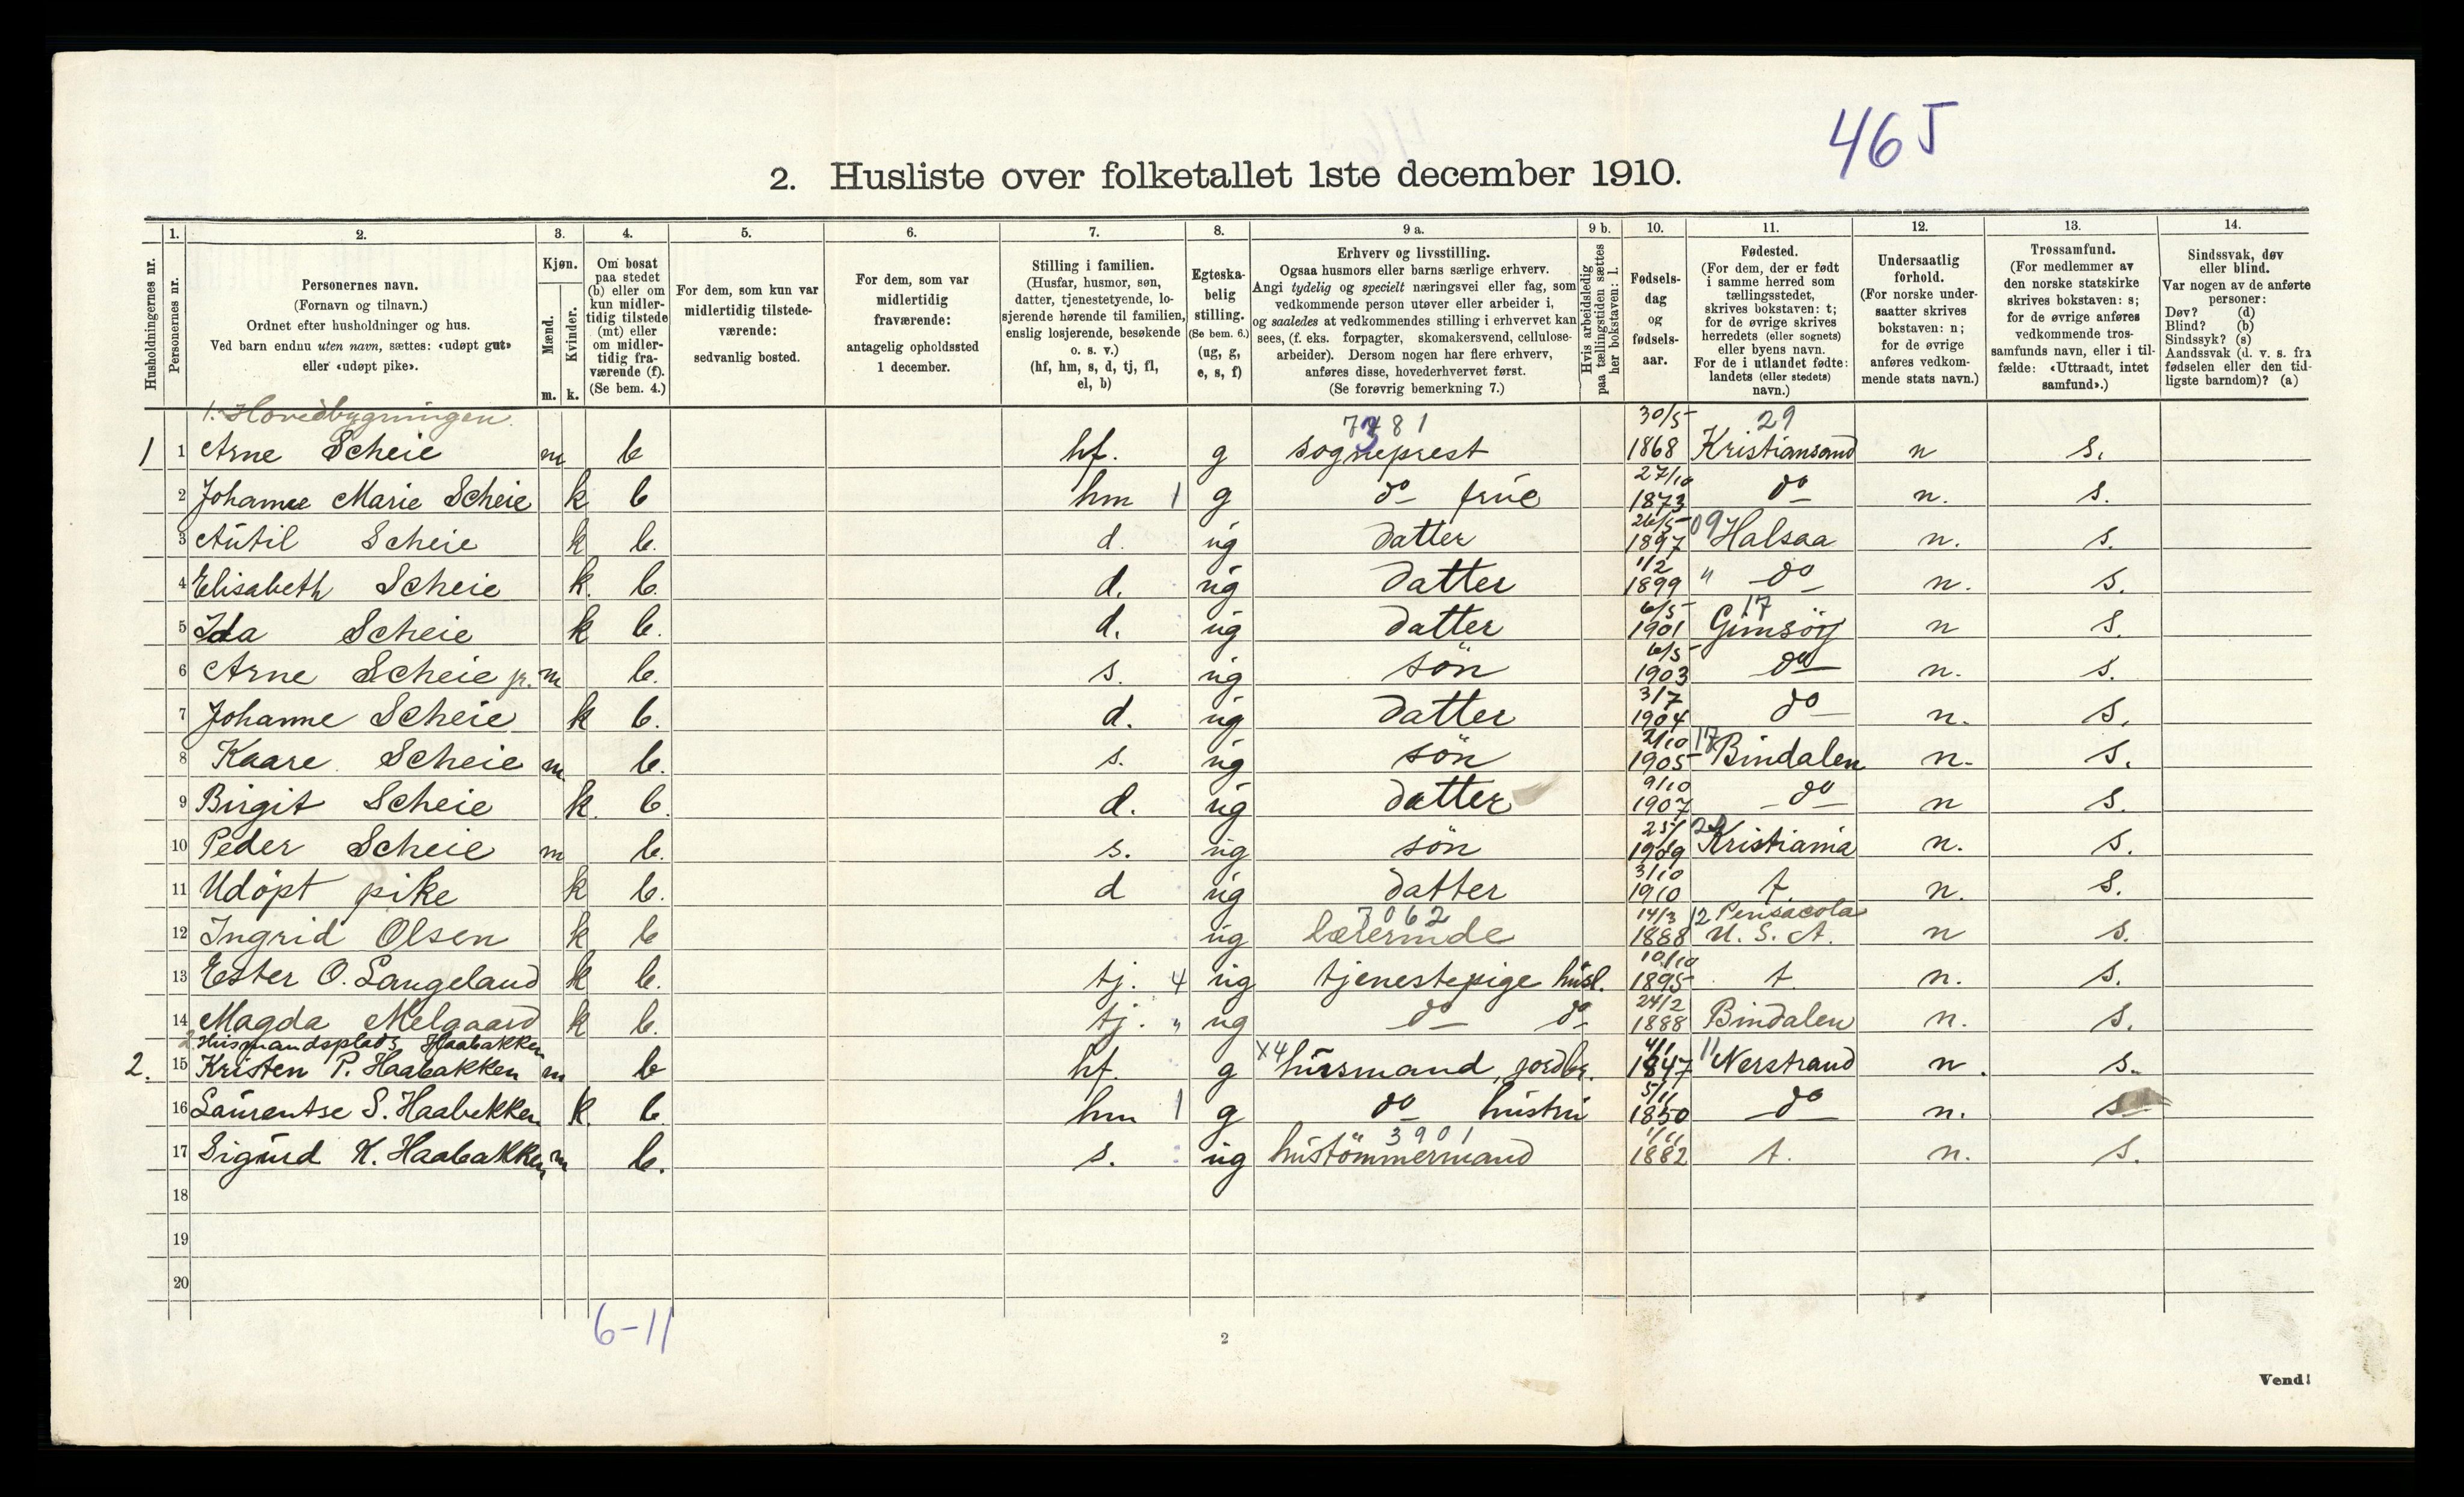 465
2. Husliste over folketallet 1ste december 1910.
Husholdningernes nr.
1. Personernes nr.
2. Personernes navn.
(Fornavn og tilnavn.)
Ordnet efter husholdninger og hus.
Ved barn endnu uten navn, sættes: «udøpt gut»
eller «udøpt pike».
3. Kjøn.
Mænd. m.
Kvinder. k.
4. Om bosat
paa stedet
(b) eller om
kun midler-
tidig tilstede
(mt) eller
om midler-
tidig fra-
værende (f).
(Se bem. 4.)
5. For dem, som kun var
midlertidig tilstede-
værende:
sedvanlig bosted.
6. For dem, som var
midlertidig
fraværende:
antagelig opholdssted
1 december.
7. Stilling i familien.
(Husfar, husmor, søn,
datter, tjenestetyende, lo-
sjerende hørende til familien,
enslig losjerende, besøkende
o. s. v.)
(hf, hm, s, d, tj, fl,
el, b)
8. Egteska-
belig
stilling.
(Se bem. 6.)
(ug, g,
e, s, f)
9 a. Erhverv og livsstilling.
Ogsaa husmors eller barns særlige erhverv.
Angi tydelig og specielt næringsvei eller fag, som
vedkommende person utøver eller arbeider i,
og saaledes at vedkommendes stilling i erhvervet kan
sees, (f. eks. forpagter, skomakersvend, cellulose-
arbeider). Dersom nogen har flere erhverv,
anføres disse, hovederhvervet først.
(Se forøvrig bemerkning 7.)
9 b. Hvis arbeidsledig
paa tællingstiden sættes
her bokstaven: l.
10. Fødsels-
dag
og
fødsels-
aar.
11. Fødested.
(For dem, der er født
i samme herred som
tællingsstedet,
skrives bokstaven: t;
for de øvrige skrives
herredets (eller sognets)
eller byens navn.
For de i utlandet fødte:
landets (eller stedets)
navn.)
12. Undersaatlig
forhold.
(For norske under-
saatter skrives
bokstaven: n;
for de øvrige
anføres vedkom-
mende stats navn.)
13. Trossamfund.
(For medlemmer av
den norske statskirke
skrives bokstaven: s;
for de øvrige anføres
vedkommende tros-
samfunds navn, eller i til-
fælde: «Uttraadt, intet
samfund».)
14. Sindssvak, døv
eller blind.
Var nogen av de anførte
personer:
Døv? (d)
Blind? (b)
Sindssyk? (s)
Aandssvak (d. v. s. fra
fødselen eller den tid-
ligste barndom)? (a)
1. Hovedbygningen. 30/5 29
1 1 Arne Scheie m b hf. g sogneprest 1868 Kristiansand n s.
2 Johanne Marie Scheie k b hm 1 g do frue 27/10 1873 do n. s.
3 Autil Scheie k b. d. ug datter 26/5 1897 09 Halsaa n. s.
4 Elisabeth Scheie k. b. d. ug datter 1/2 1899 " do n. s.
5 Ida Scheie k b. d. ug datter 6/5 1901 17 Gimsöy n s.
6 Arne Scheie jr. m b. s. ug sön 6/5 1903 do n. s.
7 Johanne Scheie k b. d. ug datter 3/7 1904 do n. s.
8 Kaare Scheie m. b. s. ug sön 2/10 1905 17 Bindalen n. s.
9 Birgit Scheie k. b. d. ug datter 9/10 1907 do n s.
10 Peder Scheie m b. s. ug sön 1909 Kristiania n. s.
11 Udöpt pike k b. d ug datter 3/10 1910 t. n. s.
12 Ingrid Olsen k b ug 7062 Lærerinde 14/3 1888 12 Pensacola U. S. A. n s.
13 Ester O. Langeland k b. tj. 4 ug tjenestepige husl. 10/10 1895 t. n. s.
14 Magda Melgaard k b. tj. " ug do do 24/2 1888 Bindalen n. s.
2 Husmandsplads Haabakken
2. 15 Kristen P. Haabakken m b hf. g x4 husmand, jordbr. 4/1 1847 11 Nerstrand n. s.
16 Laurentse S. Haabekken k. b. hm 1 g do hustru 5/11 1850 do n. s
17 Sigurd K. Haabakken m b. s. ug 3901 hustömmermand 1/11 1882 t. n. s.
18
19
20
6-11
2
Vend!